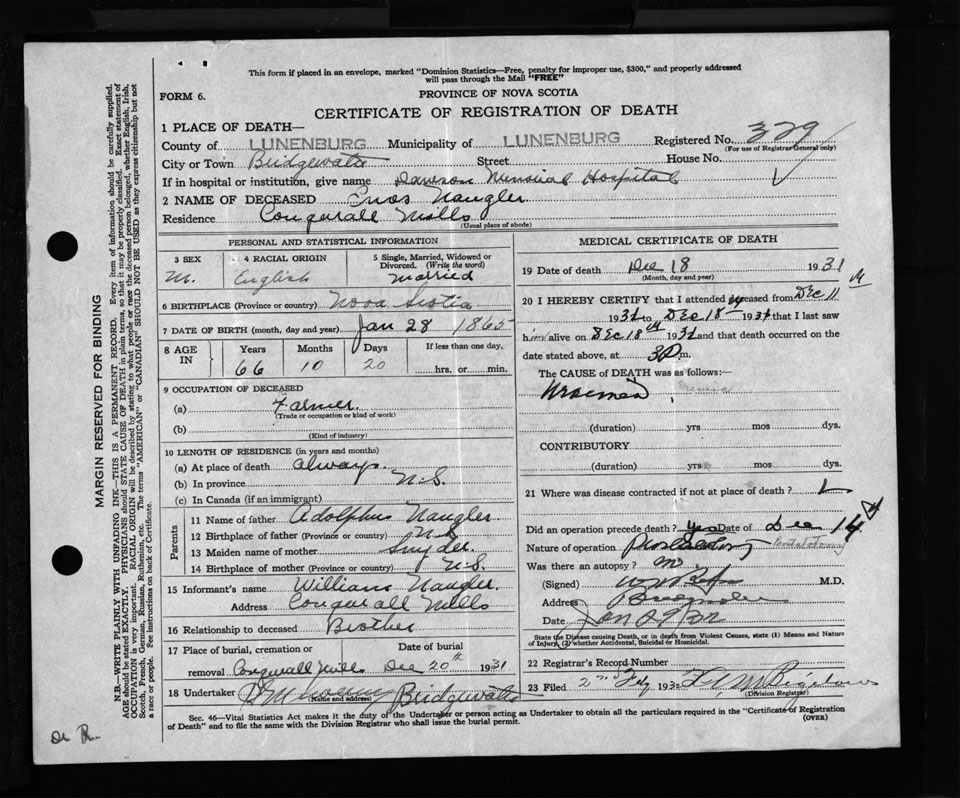 This form if placed in an envelope, marked "Dominion Statistics—Free, penalty for improper use, $300," and properly addressed
will pass through the Mail "FREE"
FORM 6.
PROVINCE OF NOVA SCOTIA
CERTIFICATE OF REGISTRATION OF DEATH
1 PLACE OF DEATH—
County of LUNENBURG Municipality of LUNENBURG Registered No. 329
(For use of Registrar General only)
City or Town Bridgewater Street House No.
If in hospital or institution, give name Dawson Memorial Hospital
2 NAME OF DECEASED Enos Naugler
Residence Conquerall Mills
(Usual place of abode)
PERSONAL AND STATISTICAL INFORMATION
3 SEX
M.
4 RACIAL ORIGIN
English
5 Single, Married, Widowed or
Divorced. (Write the word)
Married
6 BIRTHPLACE (Province or country) Nova Scotia
7 DATE OF BIRTH (month, day and year) Jan 28 1865
8 AGE
IN
Years Months Days If less than one day,
66 10 20 hrs. or min.
9 OCCUPATION OF DECEASED
(a) Farmer
(Trade or occupation or kind of work)
(b)
(Kind of industry)
10 LENGTH OF RESIDENCE (in years and months)
(a) At place of death always
(b) In province N.S.
(c) In Canada (if an immigrant)
Parents
11 Name of father Adolphus Naugler
12 Birthplace of father (Province or country) N.S.
13 Maiden name of mother Snyder
14 Birthplace of mother (Province or country) N.S.
15 Informant's name William Naugler
Address Conquerall Mills
16 Relationship to deceased Brother
17 Place of burial, cremation or Date of burial
removal Conquerall Mills Dec 20th 1931
18 Undertaker Bridgewater
(Name and address)
MEDICAL CERTIFICATE OF DEATH
19 Date of death Dec 18 1931
(Month, day and year)
20 I HEREBY CERTIFY that I attended deceased from Dec 11
1931 to Dec 18 1931 that I last saw
him alive on Dec 18th 1931 and that death occurred on the
date stated above, at 3 P m.
The CAUSE of DEATH was as follows:—
Uraemia
(duration) yrs mos dys.
CONTRIBUTORY
(duration) yrs mos dys.
21 Where was disease contracted if not at place of death?
Did an operation precede death? yes Date of Dec 14
Nature of operation Prostatotomy
Was there an autopsy? no
(Signed) M.D.
Address Bridgewater
Date
State the Disease causing Death, or in death from Violent Causes, state (1) Means and Nature
of Injury, (2) whether Accidental, Suicidal or Homicidal.
22 Registrar's Record Number
23 Filed 2nd 1932
(Division Registrar)
Sec. 46—Vital Statistics Act makes it the duty of the Undertaker or person acting as Undertaker to obtain all the particulars required in the "Certificate of Registration
of Death" and to file the same with the Division Registrar who shall issue the burial permit.
(OVER)
MARGIN RESERVED FOR BINDING
N.B.—WRITE PLAINLY WITH UNFADING INK—THIS IS A PERMANENT RECORD. Every item of information should be carefully supplied.
AGE should be stated EXACTLY. PHYSICIANS should STATE CAUSE OF DEATH in plain terms, so that it may be properly classified. Exact statement of
OCCUPATION is very important. RACIAL ORIGIN will be described by stating to what people or race the deceased person belonged, whether English, Irish,
Scotch, French, German, Russian, Ruthenian, etc. The terms "AMERICAN" or "CANADIAN" SHOULD NOT BE USED as they express citizenship but not
a race or people. See instructions on back of Certificate.